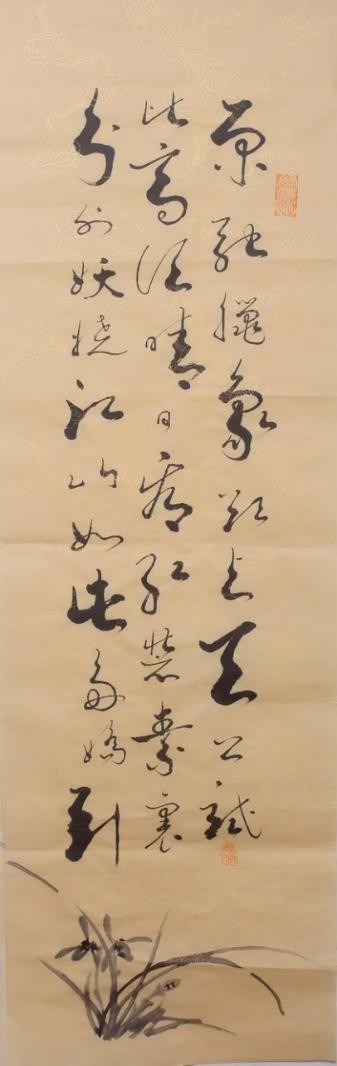 原馳臘象欲与天公試
比高須晴日看紅裝素裹
分外妖嬈江山如此多嬌引